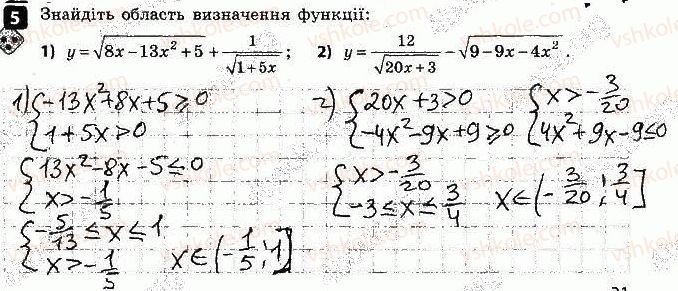 5 Знайдіть область визначення функції:
1) y=√(8x−13x²+5) + 1/√(1+5x); 2) y=12/√(20x+3) − √(9−9x−4x²).
1) { −13x²+8x+5⩾0
{ 1+5x>0
{ 13x²−8x−5⩽0
{ x>−1/5
{ −5/13 ⩽ x ⩽ 1.
{ x>−1/5 x∈(−1/5; 1]
2) { 20x+3>0 { x>−3/20
{ −4x²−9x+9⩾0 { 4x²+9x−9⩽0
{ x>−3/20
{ −3⩽x⩽3/4 x∈(−3/20; 3/4]